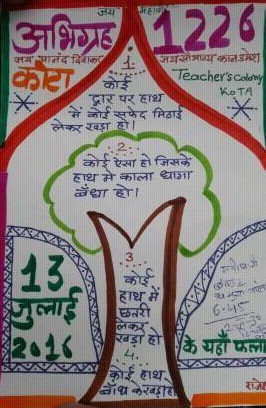 जय महावीर
अभिग्रह 1226
जय आनंद दिवाकर
जय सौभाग्य
कोटा
Teacher's Colony
KOTA
1.
कोई
द्वार पर हाथ
में कोई सफेद मिठाई
लेकर खड़ा हो।
2.
कोई ऐसा हो जिसके
हाथ में काला धागा
बँधा हो।
3.
कोई
हाथ में
छतरी
लेकर
खड़ा हो
4.
कोई हाथ
बाँध के खड़ा हो
13
जुलाई
2016
6-45
के यहाँ फला
राजे